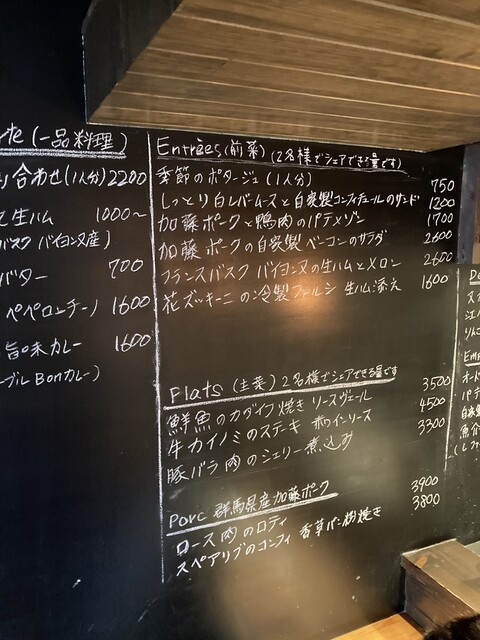 rte (一品料理)
り合わせ(1人分) 2200
生ハム 1000〜
バスク バイヨンヌ産)
バター 700
ペペロンチーノ 1600
旨味カレー 1600
ブルBonカレー)
Entrées (前菜) (2名様でシェアできる量です)
季節のポタージュ (1人分) 750
しっとり白レバームースと自家製コンフィチュールのサンド 1200
加藤ポークと鴨肉のパテメゾン 1700
加藤ポークの自家製ベーコンのサラダ 2600
フランスバスク バイヨンヌの生ハムとメロン 2600
花ズッキーニの冷製ファルシ 生ハム添え 1600
Plats (主菜) 2名様でシェアできる量です
鮮魚のカダイフ焼き ソースヴェール 3500
牛カイノミのステキ 赤ワインソース 4500
豚バラ肉のシェリー煮込み 3300
Porc 群馬県産加藤ポーク
ロース肉のロティ 3900
スペアリブのコンフィ 香草パン粉焼き 3800
De
ス
江
りんご
Em
オー
パテ
自家製
魚介
(レフ